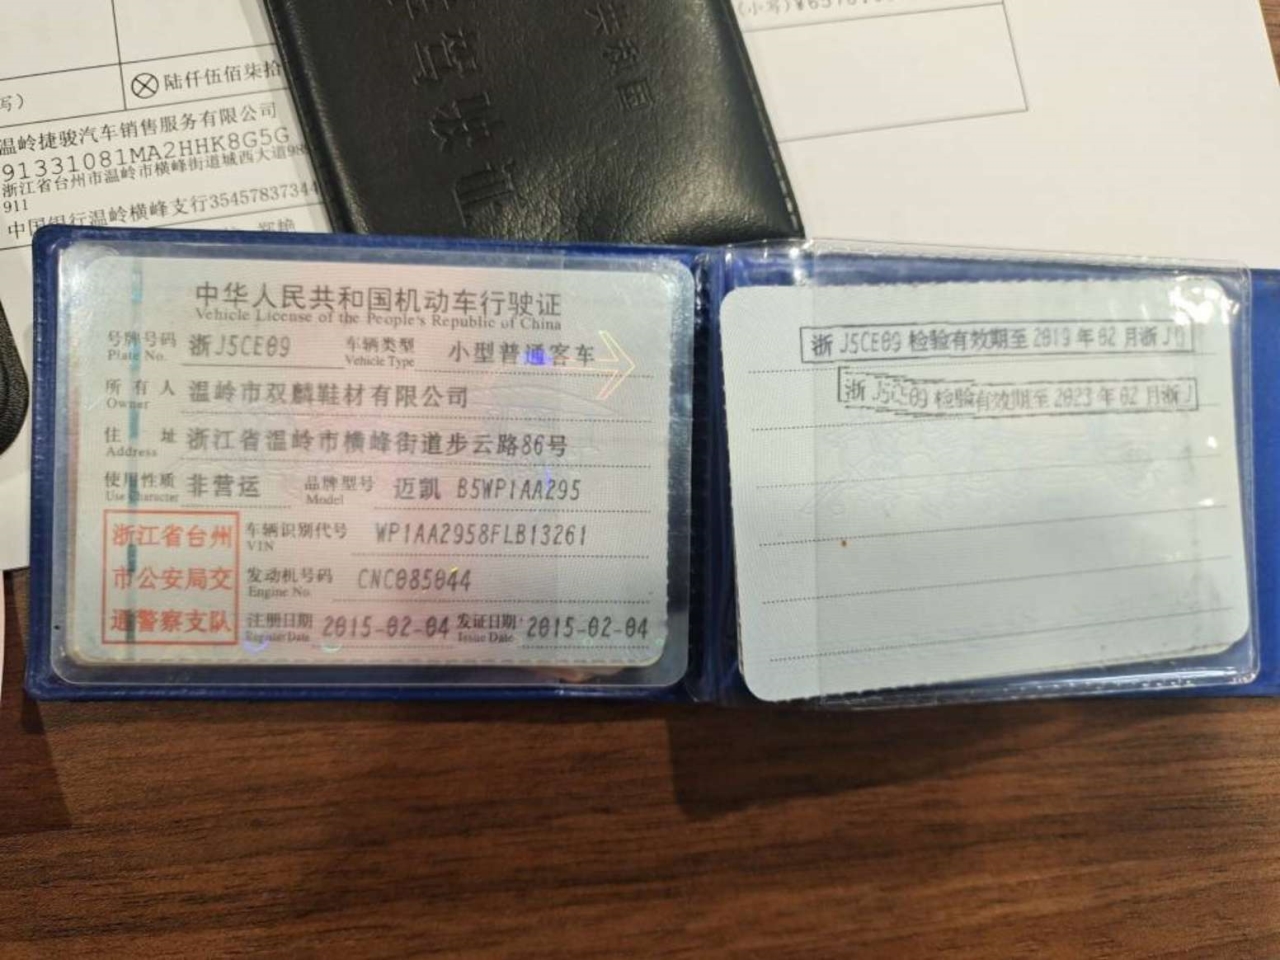 写）
陆仟伍佰柒拾
(小写)
温岭捷骏汽车销售服务有限公司
91331081MA2HHK8G5G
浙江省台州市温岭市横峰街道城西大道98
911
中国银行温岭横峰支行35457837344
驾驶证
共和国
中华人民共和国机动车行驶证
Vehicle License of the People's Republic of China
号牌号码 浙J5CE09 车辆类型 小型普通客车
Plate No. Vehicle Type
所有人 温岭市双麟鞋材有限公司
Owner
住址 浙江省温岭市横峰街道步云路86号
Address
使用性质 非营运 品牌型号 迈凯 B5WP1AA295
Use Character Model
浙江省台州 车辆识别代号 WP1AA2958FLB13261
VIN
市公安局交 发动机号码 CNC085044
Engine No.
通警察支队 注册日期 2015-02-04 发证日期 2015-02-04
Register Date Issue Date
浙 J5CE09 检验有效期至 2019 年 02 月浙 J
浙 J5CE09 检验有效期至 2023 年 02 月浙 J